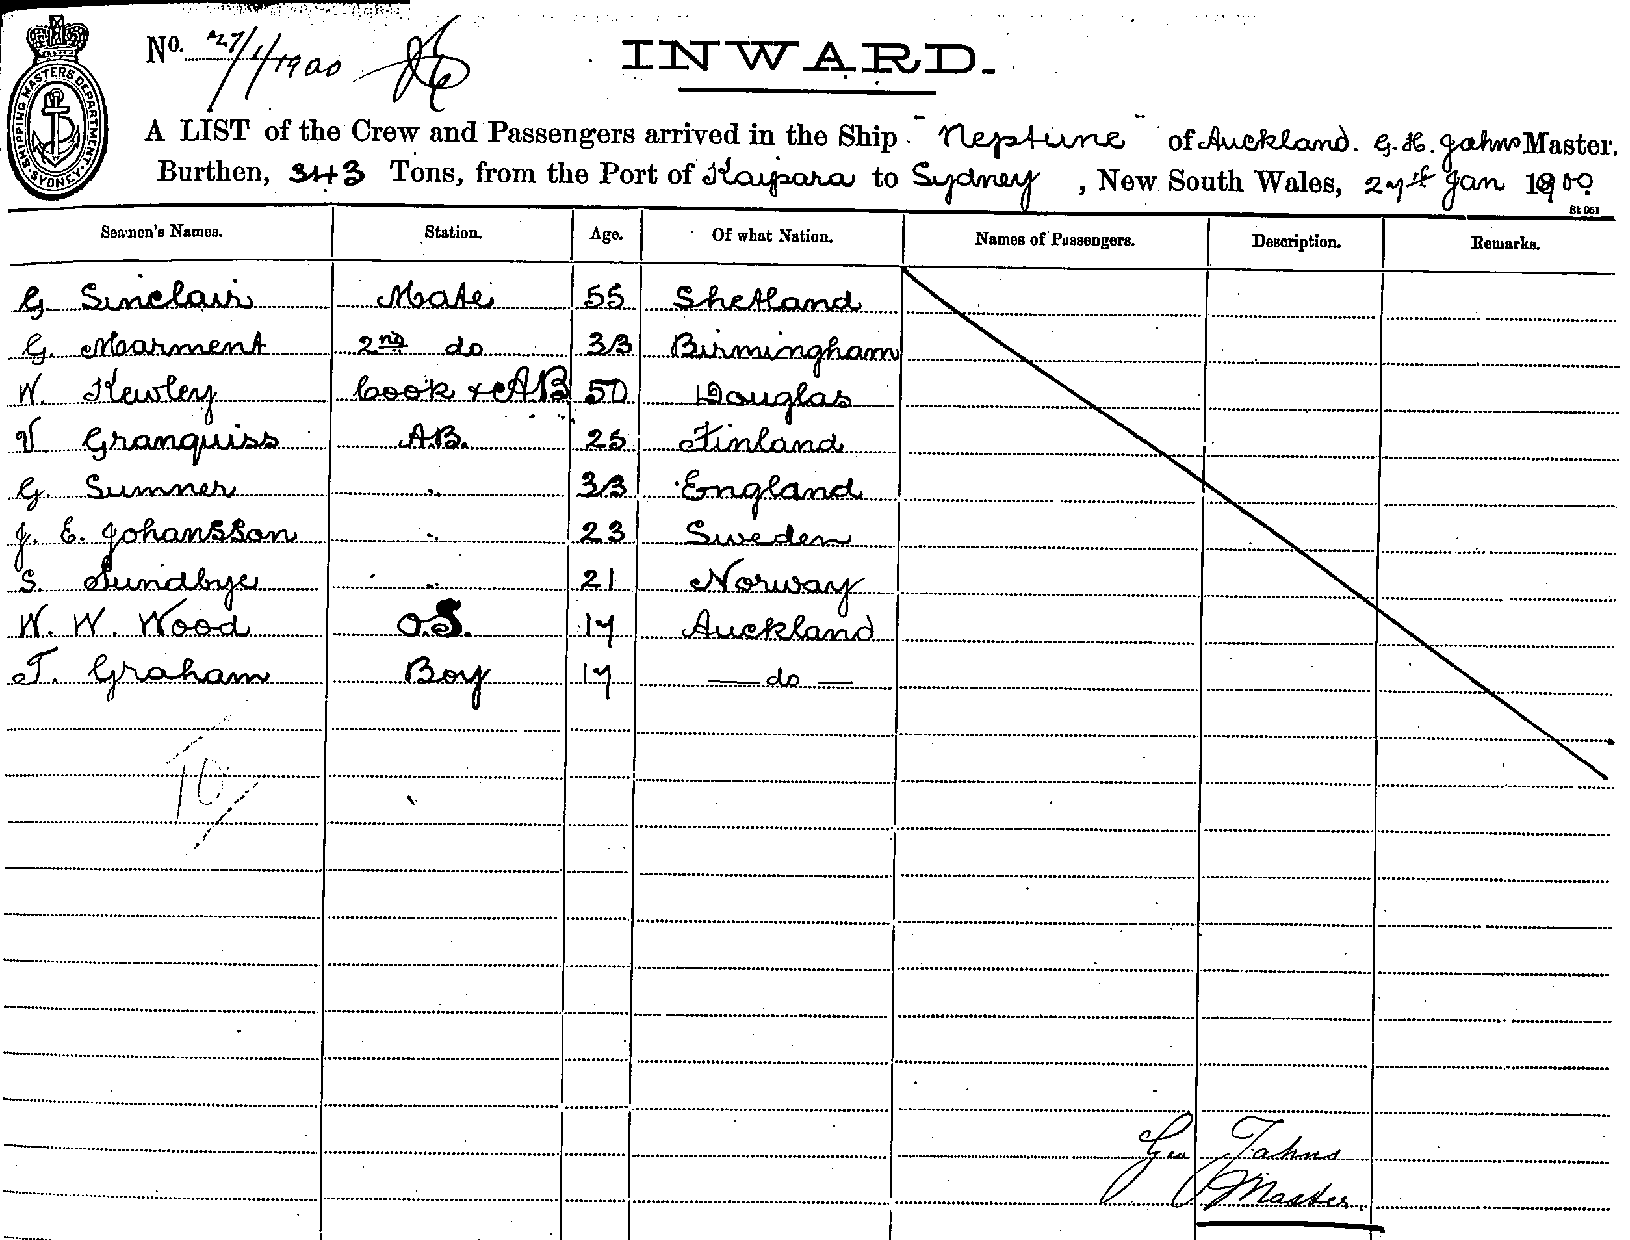 SHIPPING MASTERS DEPARTMENT SYDNEY
No. 27/1/1900
INWARD.
A LIST of the Crew and Passengers arrived in the Ship "Neptune" of Auckland. G. H. Jahns Master.
Burthen, 343 Tons, from the Port of Kaipara to Sydney, New South Wales, 27th Jan 1900
St 061
Seamen's Names. Station. Age. Of what Nation. Names of Passengers. Description. Remarks.
G. Sinclair Mate 55 Shetland
G. Marment 2nd do 33 Birmingham
W. Kewley Cook & AB 50 Douglas
V Granquiss AB. 25 Finland
G. Sumner " 33 England
J. E. Johansson " 23 Sweden
S. Sundbye " 21 Norway
W. W. Wood O.S. 17 Auckland
T. Graham Boy 17 — do —
10/
Geo Jahns
Master